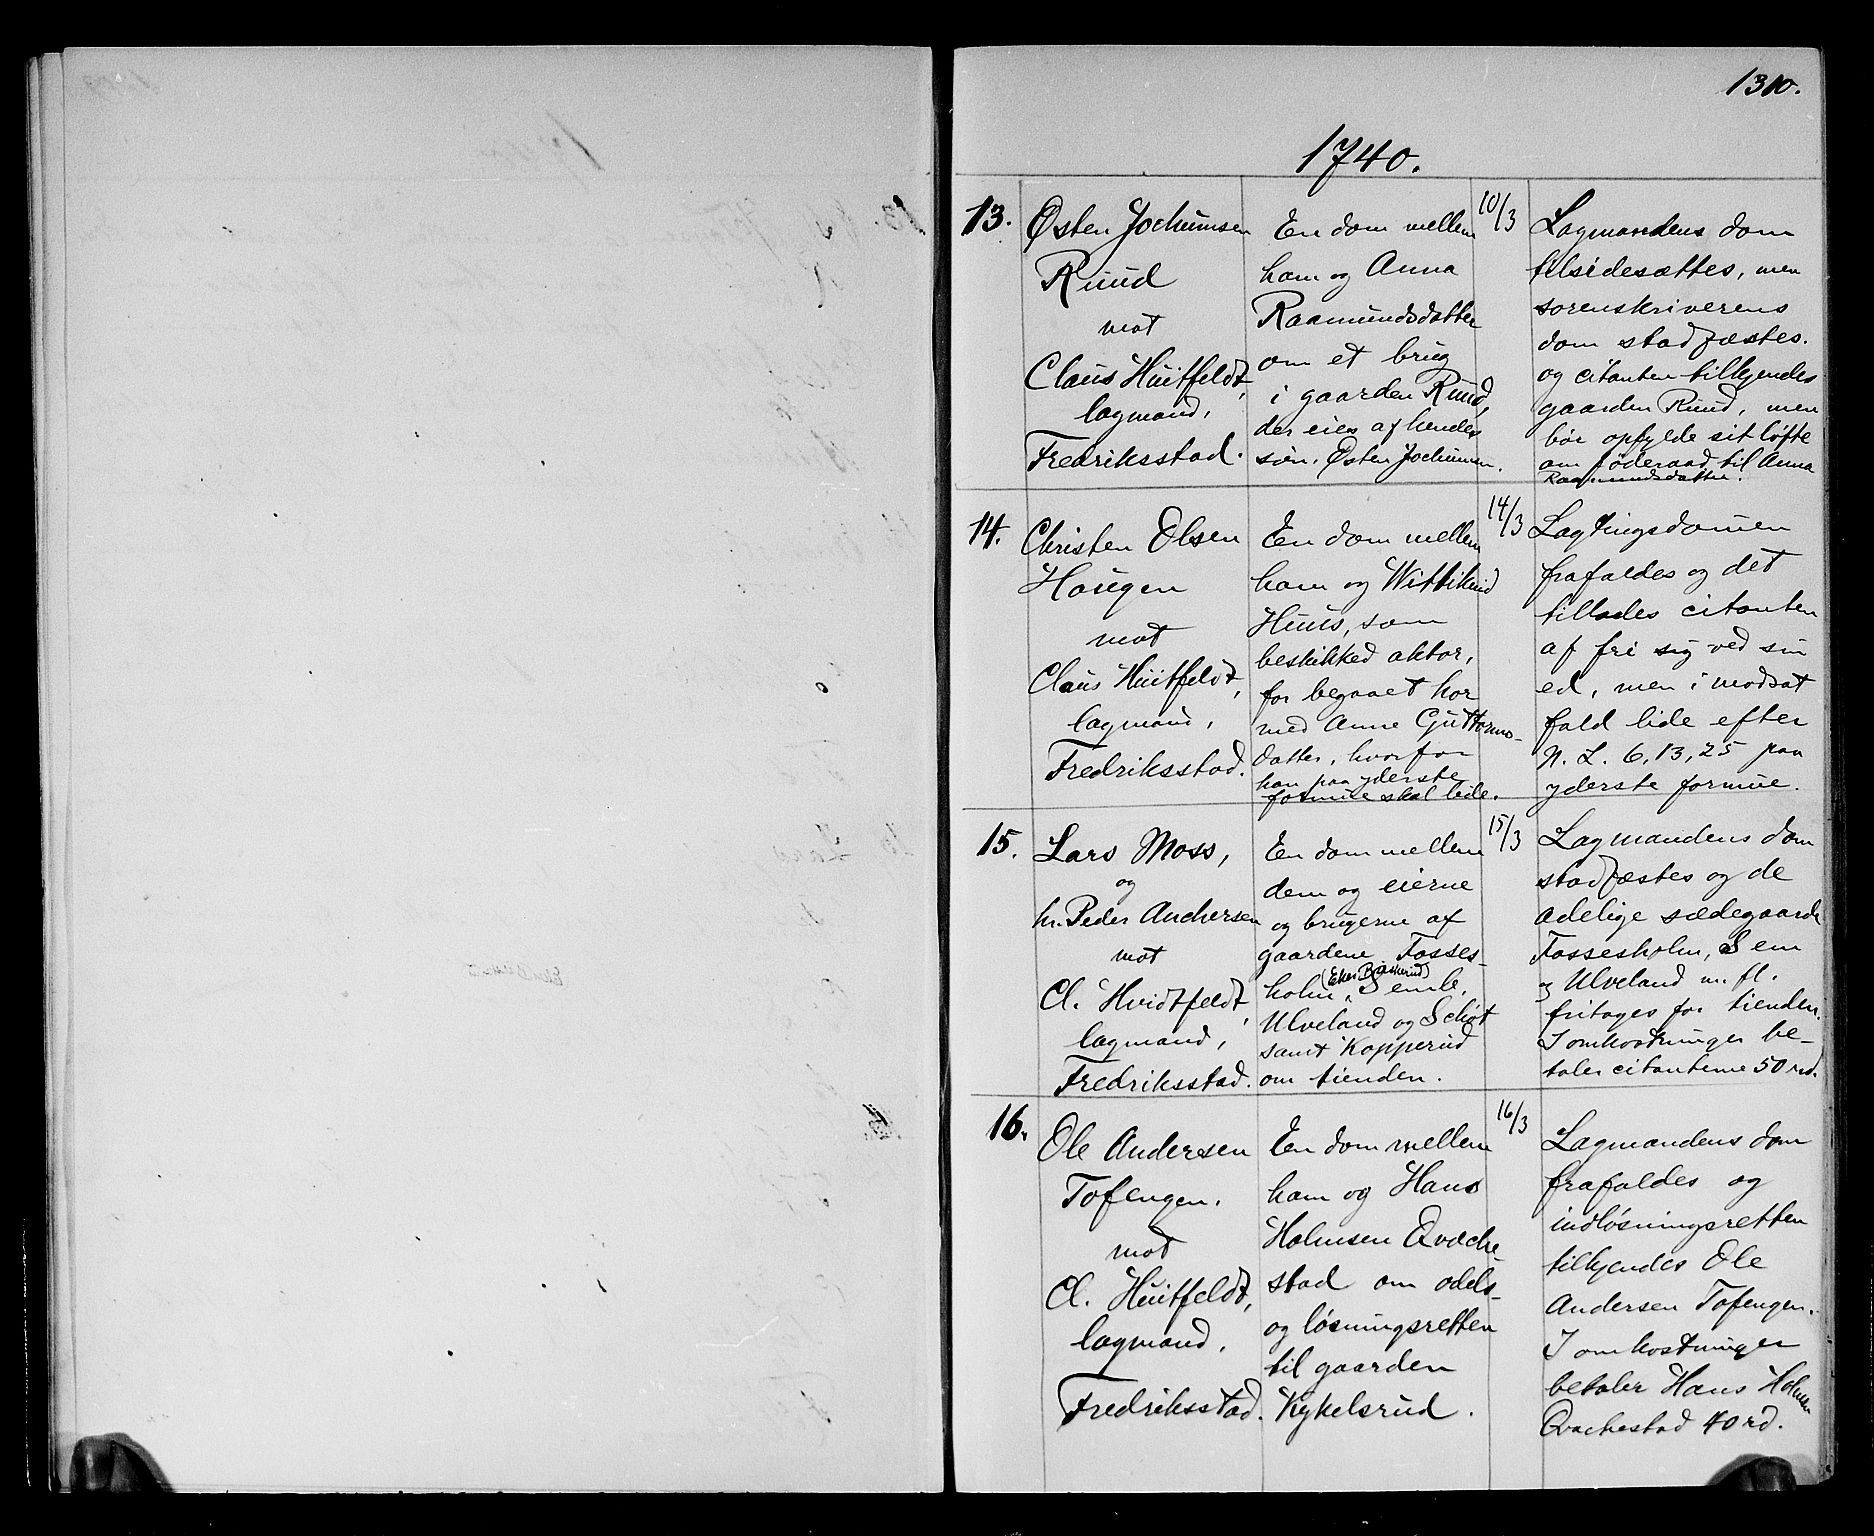 1310.
1740.
13.
Østen Jochumsen
Ruud
mot
Claus Huitfeldt,
lagmand,
Fredriksstad.
En dom mellem
ham og Anna
Raamundsdatter
om et brug
i gaarden Ruud,
der eies af hendes
søn. Østen Jochumsen.
10/3
Lagmandens dom
tilsidesættes, men
sorenskriverens
dom stadfæstes.
og citanten tilkjendes
gaarden Ruud, men
bør opfylde sit løfte
om føderaad til Anna
Raamundsdatter.
14.
Christen Olsen
Haugen
mot
Claus Huitfeldt,
lagmand,
Fredriksstad.
En dom mellem
ham og Wittikind
Huus, som
beskikked aktor,
for begaaet hor
med Anne Guttorms-
datter, hvorfor
han paa yderste
formue skal lide.
14/3
Lagtingsdommen
frafaldes og det
tillades citanten
af fri sig ved sin
ed, men i modsat
fald lide efter
N. L. 6, 13, 25 paa
yderste formue.
15.
Lars Moss,
og
hr. Peder Anchersen
mot
Cl. Hvidtfeldt,
lagmand,
Fredriksstad.
En dom mellem
dem og eierne
og brugerne af
gaardene Fosses-
(Eker Buskerud)
holm, Semb,
Ulveland og Schøt
samt Kopperud
om tienden.
15/3
Lagmandens dom
stadfæstes og de
adelige sædegaarde
Fossesholm, Sem
og Ulveland m. fl.
fritages for tienden.
I omkostninger be-
taler citanterne 50 rd.
16.
Ole Andersen
Tofengen.
mot
Cl. Huitfeldt,
lagmand,
Fredriksstad.
En dom mellem
ham og Hans
Holmsen Qvache-
stad om odels-
og løsningsretten
til gaarden
Kykelsrud.
16/3
Lagmandens dom
frafaldes og
indløsningsretten
tilkjendes Ole
Andersen Tofengen.
I omkostninger
betaler Hans Holmsen
Qvachestad 40 rd.